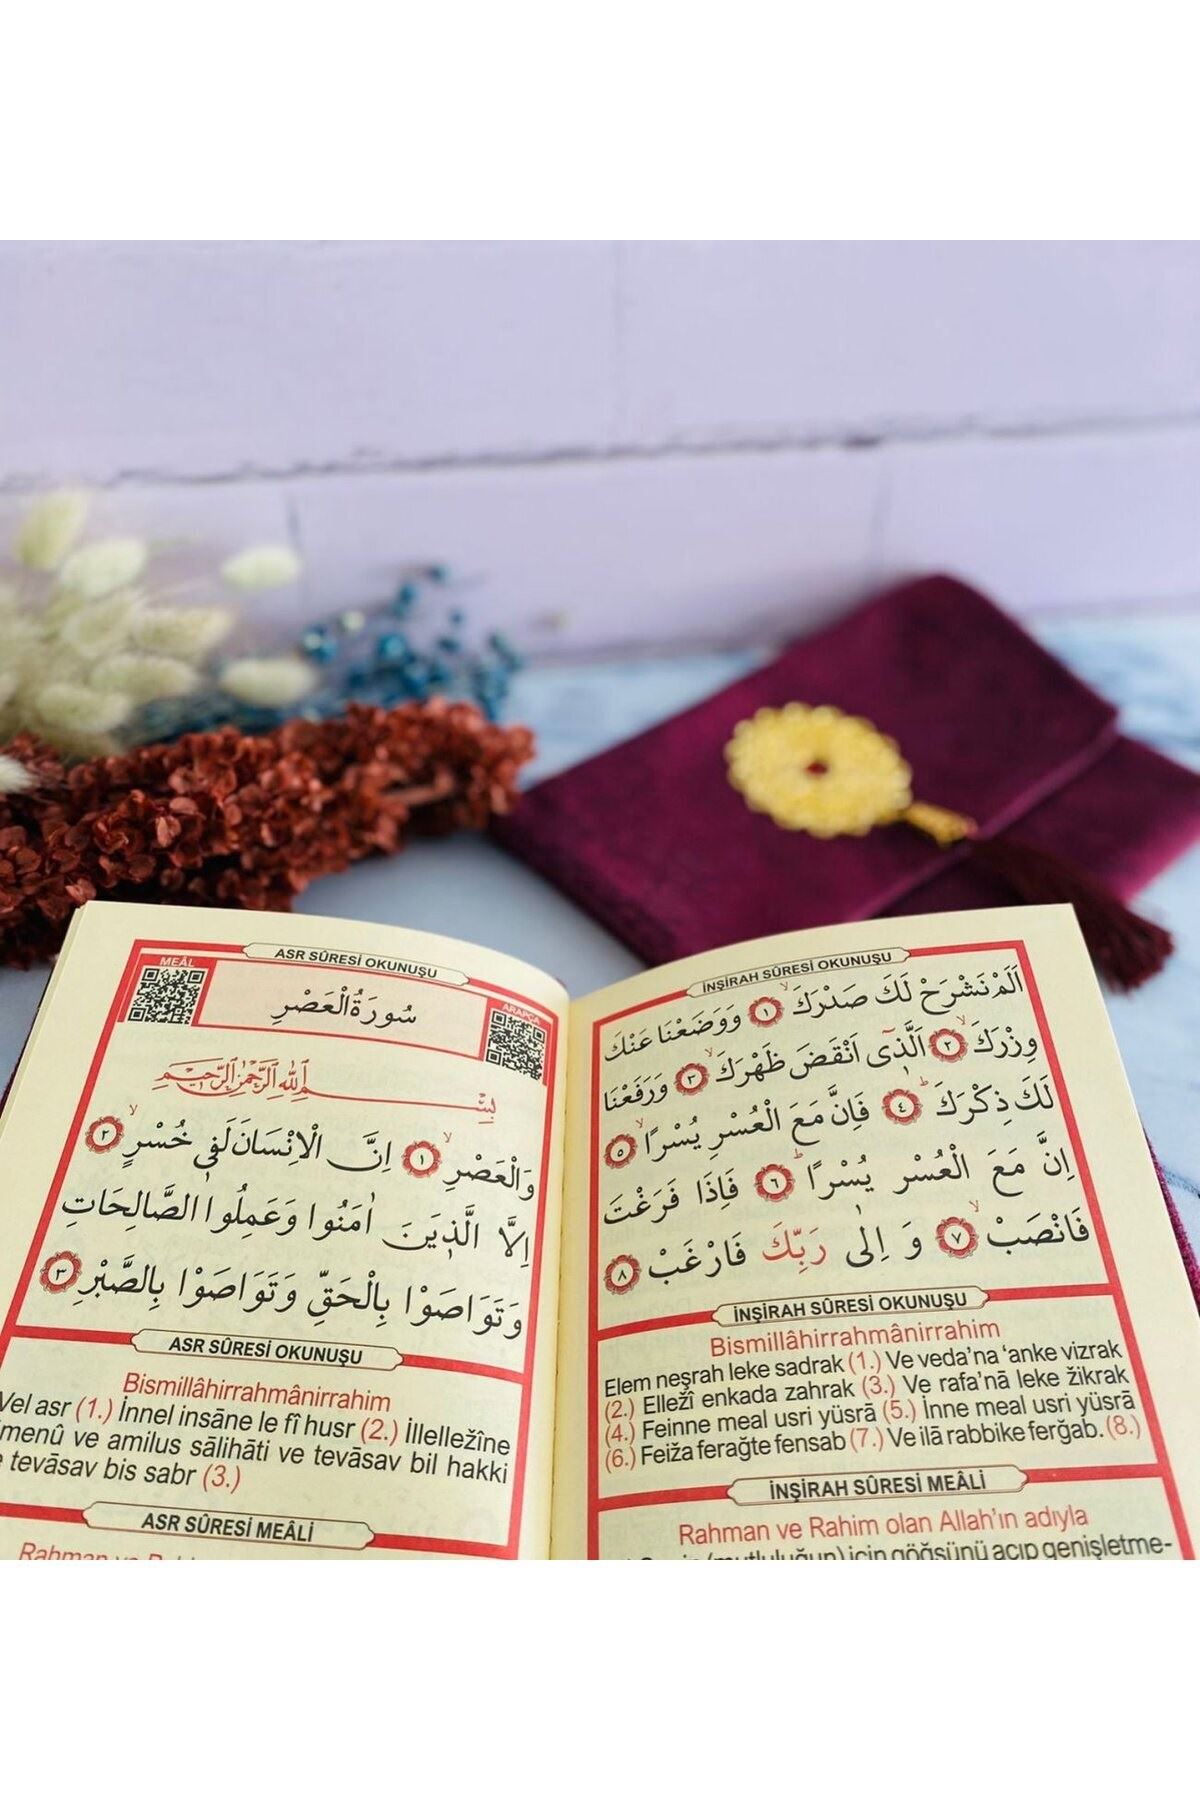 ASR SÛRESİ OKUNUŞU
MEÂL
ARAPÇA
سُورَةُ الْعَصْرِ
بِسْمِ اللهِ الرَّحْمٰنِ الرَّحِيمِ
وَالْعَصْرِۙ ﴿١﴾ اِنَّ الْاِنْسَانَ لَفٖى خُسْرٍۙ ﴿٢﴾
اِلَّا الَّذٖينَ اٰمَنُوا وَعَمِلُوا الصَّالِحَاتِ
وَتَوَاصَوْا بِالْحَقِّ وَتَوَاصَوْا بِالصَّبْرِ ﴿٣﴾
ASR SÛRESİ OKUNUŞU
Bismillâhirrahmânirrahim
Vel asr (1.) İnnel insāne le fî husr (2.) İllelležîne
menû ve amilus sālihāti ve tevāsav bil hakki
tevāsav bis sabr (3.)
ASR SÛRESİ MEÂLİ
Rahman
İNŞİRAH SÛRESİ OKUNUŞU
اَلَمْ نَشْرَحْ لَكَ صَدْرَكَۙ ﴿١﴾ وَوَضَعْنَا عَنْكَ
وِزْرَكَۙ ﴿٢﴾ اَلَّذٖٓى اَنْقَضَ ظَهْرَكَۙ ﴿٣﴾ وَرَفَعْنَا
لَكَ ذِكْرَكَؕ ﴿٤﴾ فَاِنَّ مَعَ الْعُسْرِ يُسْرًاۙ ﴿٥﴾
اِنَّ مَعَ الْعُسْرِ يُسْرًاؕ ﴿٦﴾ فَاِذَا فَرَغْتَ
فَانْصَبْۙ ﴿٧﴾ وَ اِلٰى رَبِّكَ فَارْغَبْ ﴿٨﴾
İNŞİRAH SÛRESİ OKUNUŞU
Bismillâhirrahmânirrahim
Elem neşrah leke sadrak (1.) Ve veda’na ‘anke vizrak
(2.) Elležî enkada zahrak (3.) Ve rafa’nā leke žikrak
(4.) Feinne meal usri yüsrā (5.) İnne meal usri yüsrā
(6.) Feiža ferağte fensab (7.) Ve ilā rabbike ferğab. (8.)
İNŞİRAH SÛRESİ MEÂLİ
Rahman ve Rahim olan Allah’ın adıyla
(mutluluğun) için göğsünü açıp genişletme-